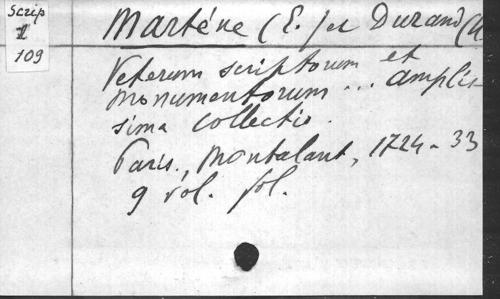 Scrip
1
109
Marténe (E.) et Durand (U
Veterum scriptorum et
monumentorum ... amplis
sima collectio.
Paris, Montalant, 1724-33
9 vol. fol.